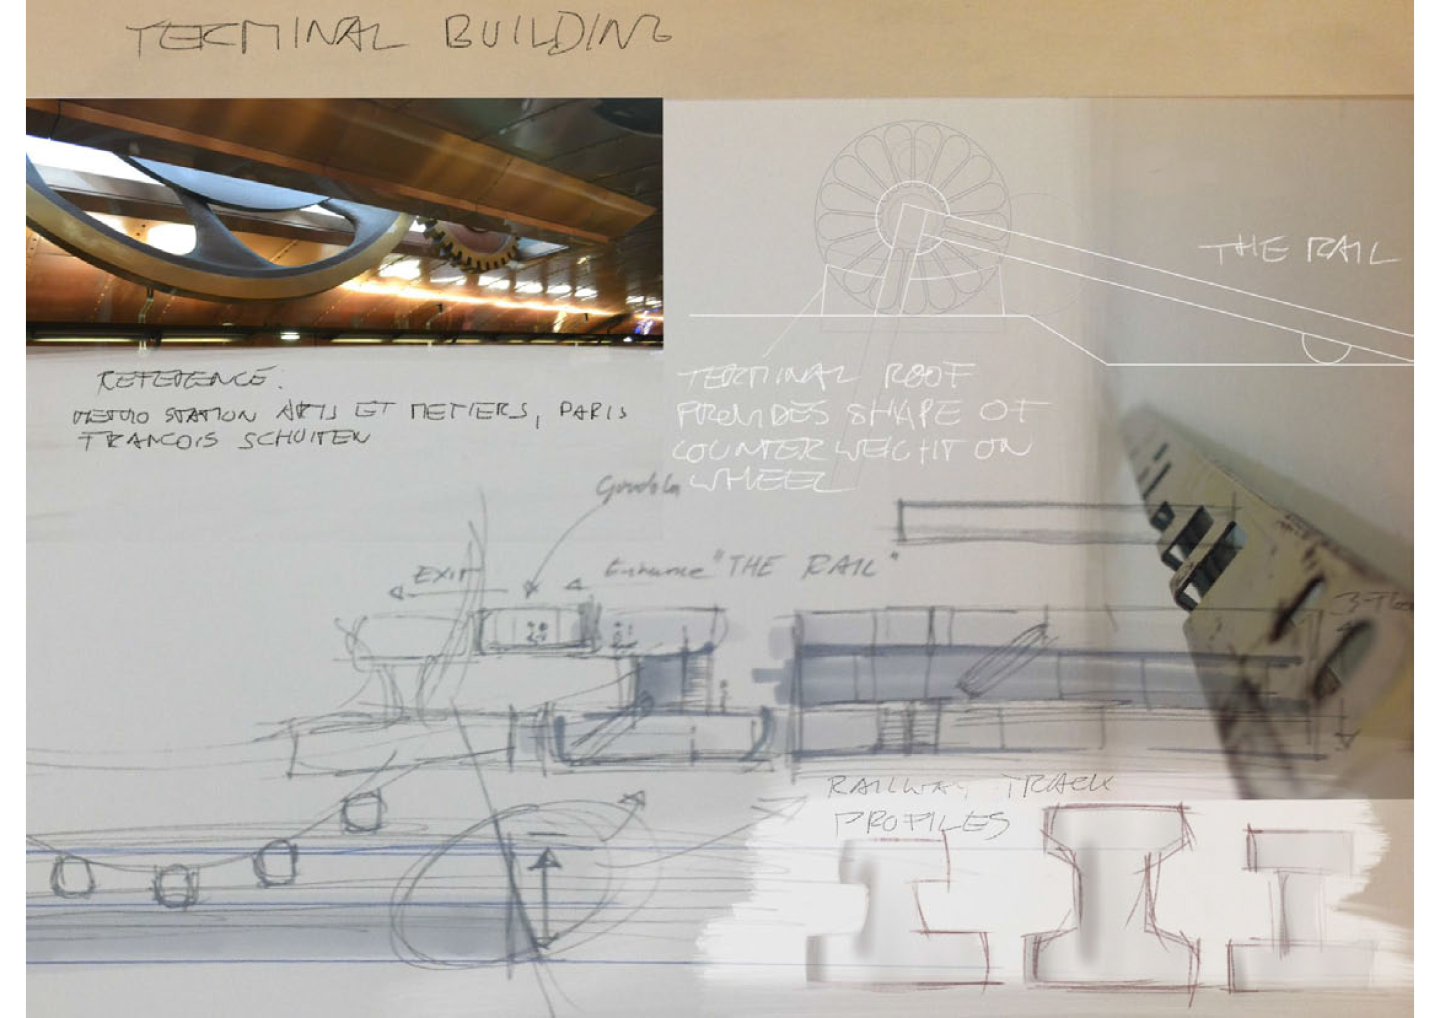 TERMINAL BUILDING
THE RAIL
REFERENCE:
METRO STATION ARTS ET METIERS, PARIS
FRANCOIS SCHUITEN
TERMINAL ROOF
PROVIDES SHAPE OF
COUNTER WEIGHT ON
WHEEL
Gondola
EXIT
Entrance "THE RAIL"
RAILWAY TRACK
PROFILES